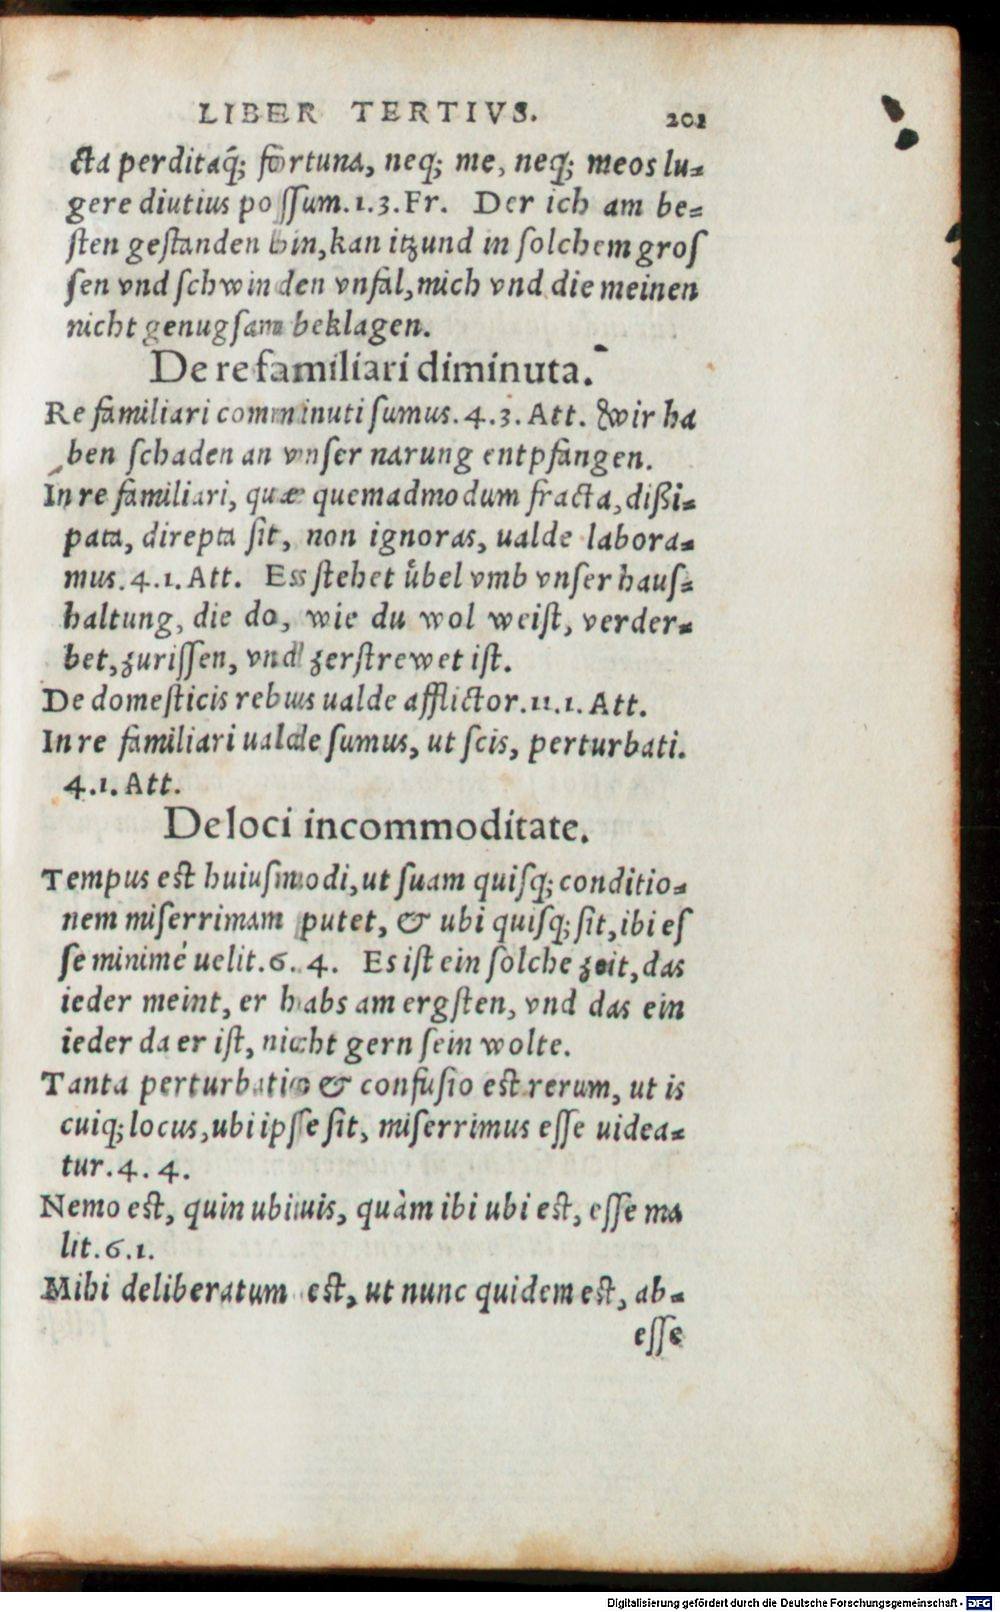 LIBER TERTIVS. 201
cta perditaq́; fortuna, neq; me, neq; meos lu-
gere diutius possum.1.3.Fr. Der ich am be-
sten gestanden bin, kan itzund in solchem gros
sen vnd schwinden vnfal, mich vnd die meinen
nicht genugsam beklagen.
De re familiari diminuta.
Re familiari comminuti sumus.4.3.Att. Wir ha
ben schaden an vnser narung entpfangen.
In re familiari, quæ quemadmodum fracta, dißi-
pata, direpta sit, non ignoras, ualde labora-
mus.4.1.Att. Es stehet uͤbel vmb vnser haus-
haltung, die do, wie du wol weist, verder-
bet, zurissen, vnd zerstrewet ist.
De domesticis rebus ualde afflictor.11.1.Att.
In re familiari ualde sumus, ut scis, perturbati.
4.1.Att.
De loci incommoditate.
Tempus est huiusmodi, ut suam quisq; conditio-
nem miserrimam putet, & ubi quisq; sit, ibi es
se minimé uelit.6.4. Es ist ein solche zeit, das
ieder meint, er habs am ergsten, vnd das ein
ieder da er ist, nicht gern sein wolte.
Tanta perturbatio & confusio est rerum, ut is
cuiq; locus, ubi ipse sit, miserrimus esse uidea-
tur.4.4.
Nemo est, quin ubiuis, quàm ibi ubi est, esse ma
lit.6.1.
Mihi deliberatum est, ut nunc quidem est, ab-
esse
Digitalisierung gefördert durch die Deutsche Forschungsgemeinschaft - DFG